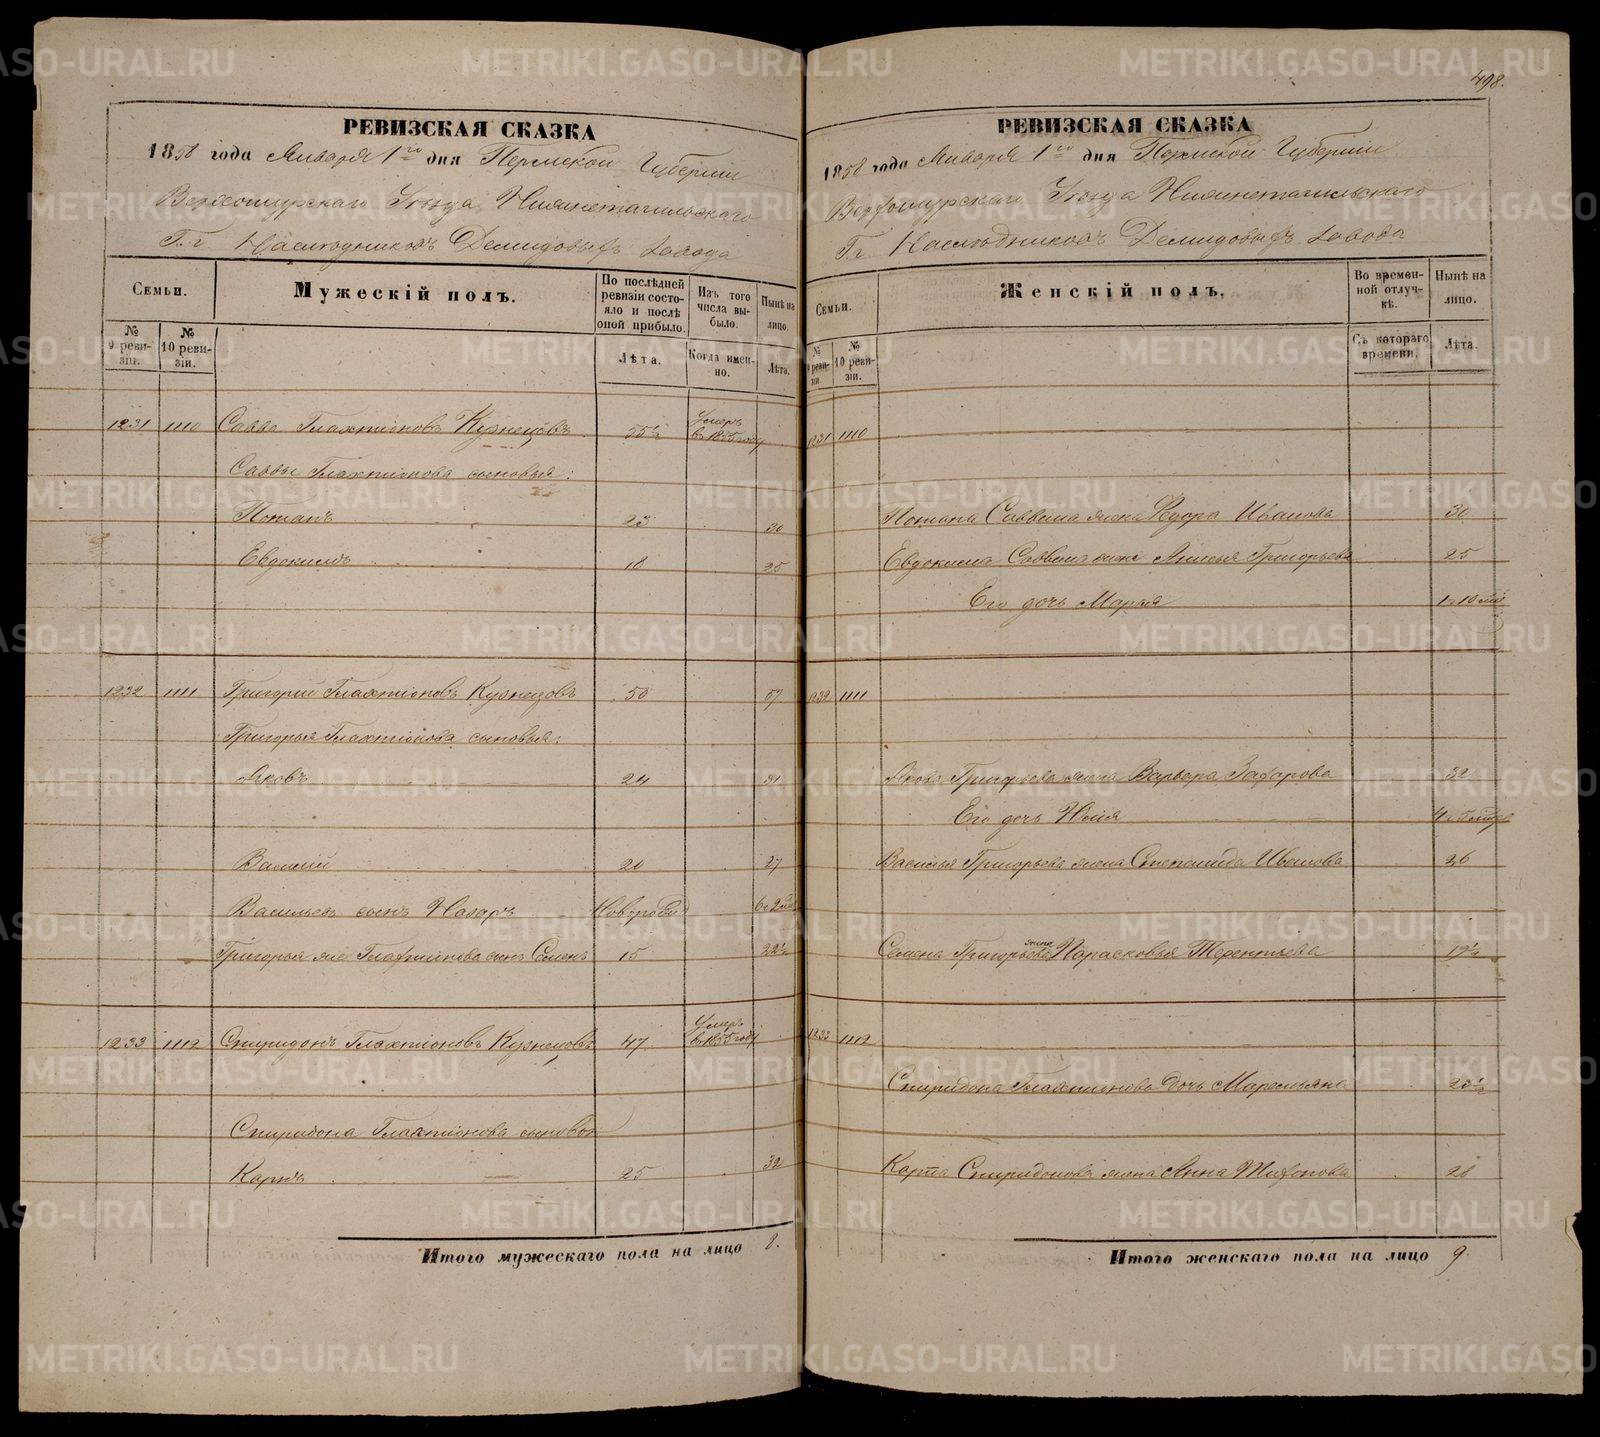 498.
РЕВИЗСКАЯ СКАЗКА
1858 года Января 1го дня Пермской Губерніи
Верхотурскаго Уѣзда Нижнетагильскаго
Гг. Наслѣдниковъ Демидовыхъ Завода
Семьи.
Мужескій полъ.
По послѣдней ревизіи состояло и послѣ оной прибыло.
Изъ того числа выбыло.
Нынѣ на лицо.
№ 9 ревизіи.
№ 10 ревизіи.
Лѣта.
Когда именно.
Лѣта.
1231 1110 Савва Галактіоновъ Кузнецовъ 55½ Умеръ в 1855 году
Саввы Галактіонова сыновья:
Потапъ 23 30
Евдокимъ 18 25
1232 1111 Григорій Галактіоновъ Кузнецовъ 50 57
Григорья Галактіонова сыновья:
Яковъ 24 31
Василій 20 27
Васильевъ сынъ Назаръ Новорожд 6
Григорья же Галактіонова сынъ Семенъ 15 22½
1233 1112 Спиридонъ Галактіоновъ Кузнецовъ 47 Умеръ в 1855 году
Спиридона Галактіонова сыновья
Карпъ 25 32
Итого мужескаго пола на лицо 8.
РЕВИЗСКАЯ СКАЗКА
1858 года Января 1го дня Пермской Губерніи
Верхотурскаго Уѣзда Нижнетагильскаго
Гг. Наслѣдниковъ Демидовыхъ Завода
Семьи.
Женскій полъ.
Во временной отлучкѣ.
Нынѣ на лицо.
№ 9 ревизіи.
№ 10 ревизіи.
Съ котораго времени.
Лѣта.
1231 1110
Потапа Саввина жена Ѳедора Иванова 30
Евдокима Саввина жена Григорьева 25
Его дочь Марья
1232 1111
Якова Григорьева жена Варвара Захарова 32
Его дочь
Василья Григорьева жена Степанида Иванова 26
Семена Григорьева жена Парасковья Терентьева 19½
1233 1112
Спиридона Галактіонова дочь Маремьяна
Карпа Спиридонова жена Анна 28
Итого женскаго пола на лицо 9.
METRIKI.GASO-URAL.RU